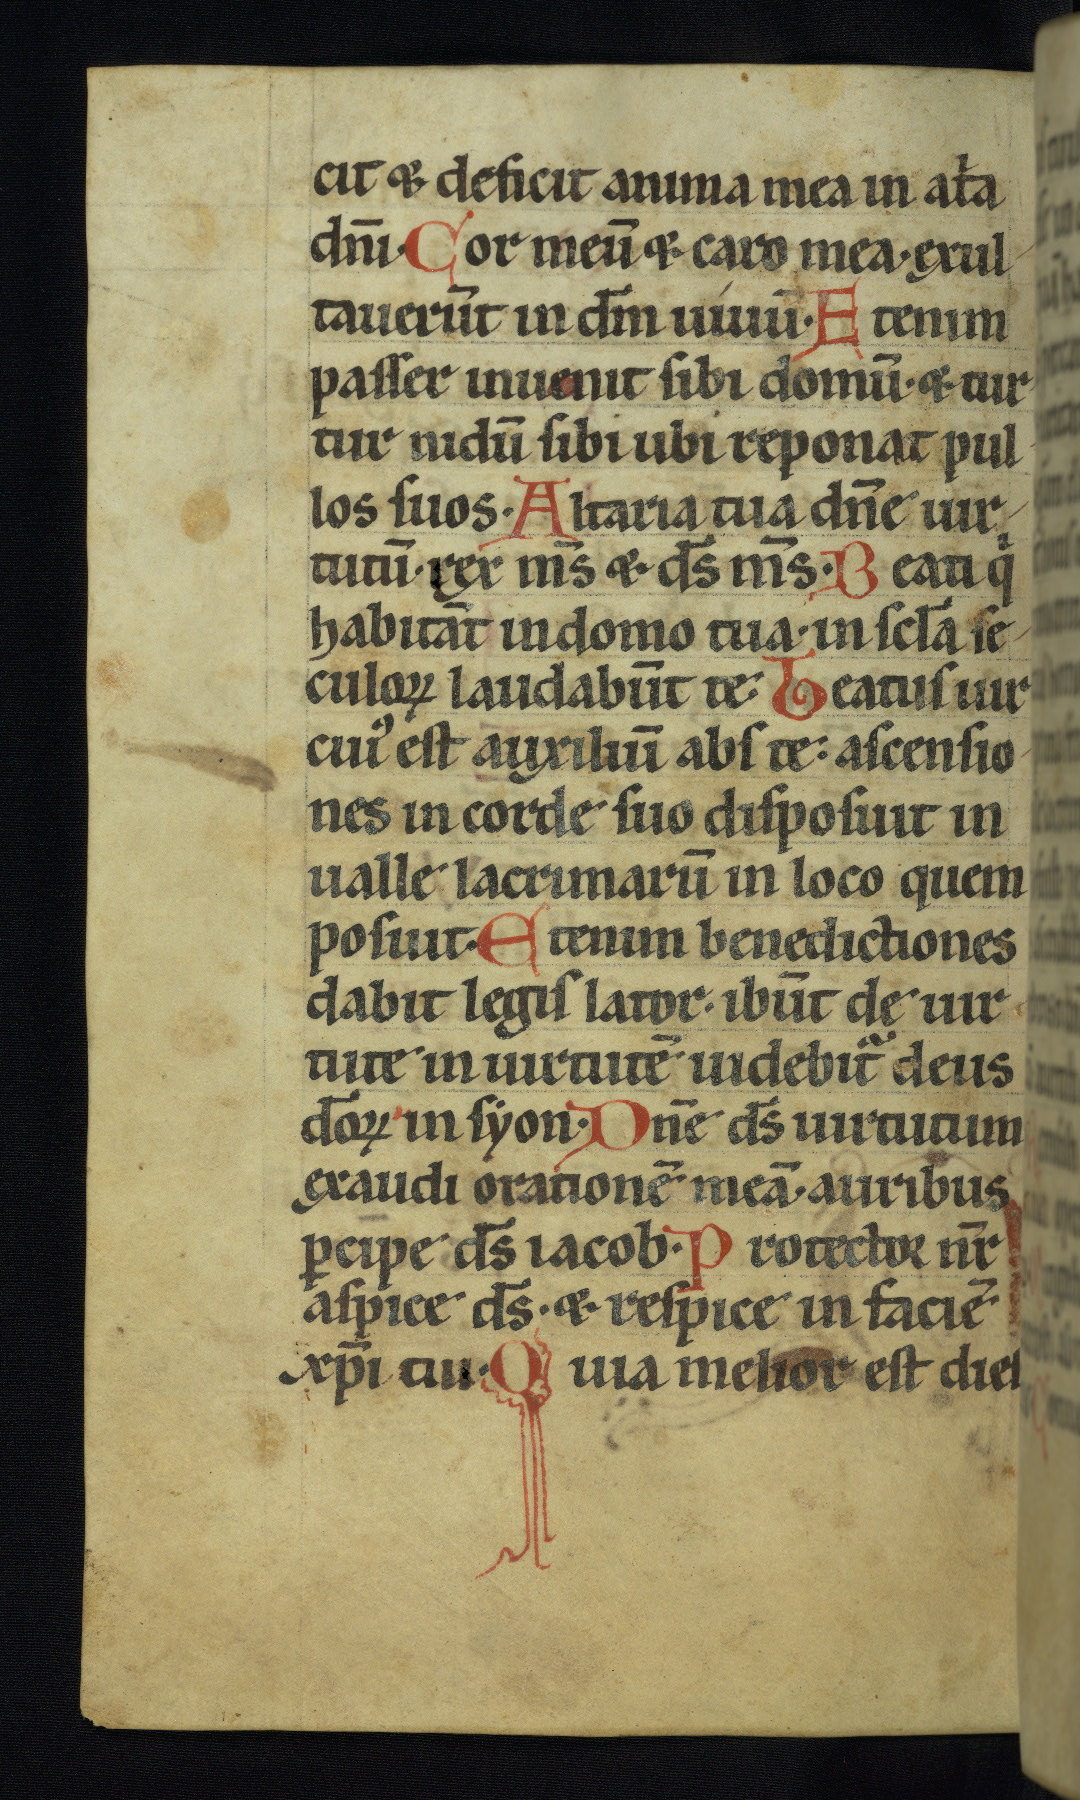 cit & deficit anima mea in at̄a
dn̄i. Cor meū & caro mea. exul
tauerūt in dm̄ uiuū. Etenim
paſſer inuenit ſibi domū. & tur
tur nidū ſibi ubi reponat pul
los ſuos. Altaria tua dn̄e uir
tutū. rex m̄s & ds̄ m̄s. Beati qͥ
habitāt in domo tua. in ſcl̄a ſe
culoꝝ laudabūt te. Beatuſ uir
cuiꝰ eſt auxiliū abſ te: aſcenſio
nes in corde ſuo diſpoſuit in
ualle lacrimarū in loco quem
poſuit. Etenim benedictiones
dabit legiſ lator. ibūt de uir
tute in uirtutē uidebit᷑ deus
dōꝝ in ſyon. Dn̄e ds̄ uirtutum
exaudi orationē meā. auribus
ꝑcipe ds̄ iacob. Protectoꝛ nr̄
aſpice ds̄. & reſpice in faciē
xp̄i tui. Quia melior eſt dieſ